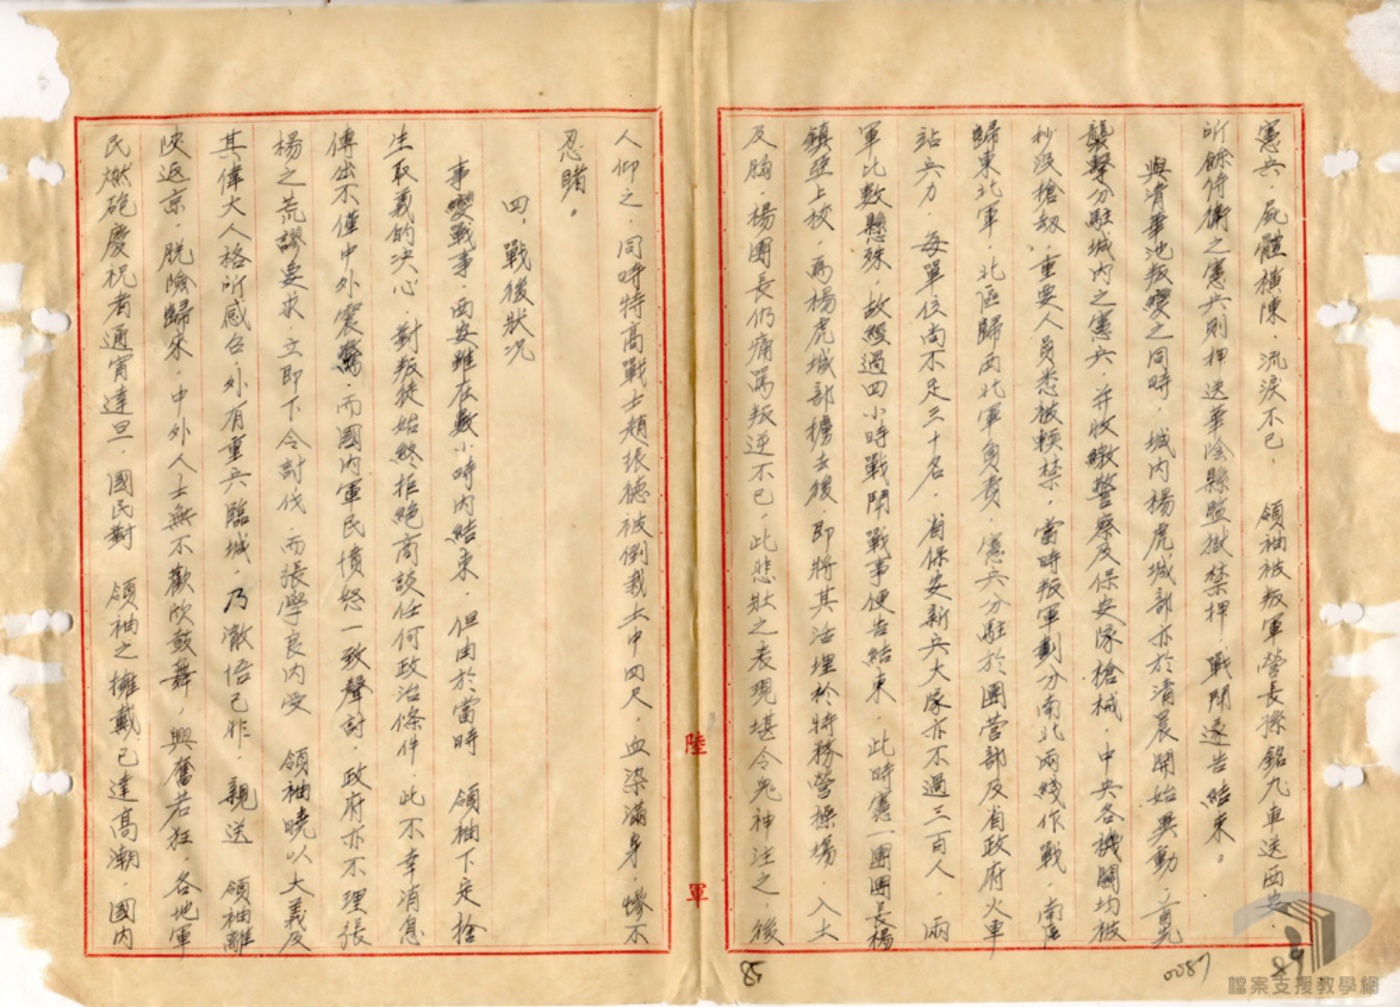 憲兵．屍體橫陳．流淚不已． 領袖被叛軍營長孫銘九車送西安．
所餘侍衛之憲兵則押送華陰縣監獄禁押．戰鬥遂告結束。
與清華池叛變之同時，城內楊虎城部亦於清晨開始異動．首先
襲擊分駐城內之憲兵．并收繳警察及保安隊槍械．中央各機關均被
抄沒槍劫．重要人員悉被軟禁．當時叛軍劃分南北兩綫作戰．南區
歸東北軍．北區歸西北軍負責．憲兵分駐於團營部及省政府火車
站兵力．每單位尚不足三十名．省保安新兵大隊亦不過三百人．兩
軍比數懸殊．故經過四小時戰鬥戰事便告結束．此時憲一團團長楊
鎮亞上校．為楊虎城部擄去後．即將其活埋於特務營操場．入土
及胸．楊團長仍痛罵叛逆不已．此悲壯之表現堪令鬼神泣之．後
人仰之．同時特高戰士趙振德被倒栽土中四尺．血染滿身．慘不
忍睹。
四．戰後狀况
事變戰事．西安雖在數小時內結束．但由於當時 領袖下定捨
生取義的决心．對叛徒始終拒絕商談任何政治條件．此不幸消息
傳出不僅中外震驚．而國內軍民憤怒一致聲討．政府亦不理張
楊之荒謬要求．立即下令討伐．而張學良內受 領袖曉以大義及
其偉大人格所感召．外有重兵臨城．乃澈悟己非．親送 領袖離
陝返京．脫險歸來．中外人士無不歡欣鼓舞．興奮若狂．各地軍
民燃砲慶祝者通宵達旦．國民對 領袖之擁戴已達高潮．國內
陸軍
85
0087
89
檔案支援教學網